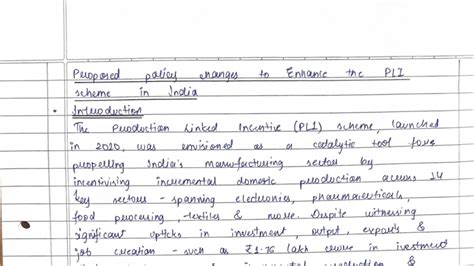 Proposed policy changes to Enhance the PLI
scheme in India
Introduction
The Production Linked Incentive (PLI) scheme, launched
in 2020, was envisioned as a catalytic tool for
propelling India's manufacturing sector by
incentivising incremental domestic production across 14
key sectors - spanning electronics, pharmaceuticals,
food processing, textiles & more. Despite witnessing
significant upticks in investment, output, exports &
job creation - such as ₹1.76 lakh crore in investment